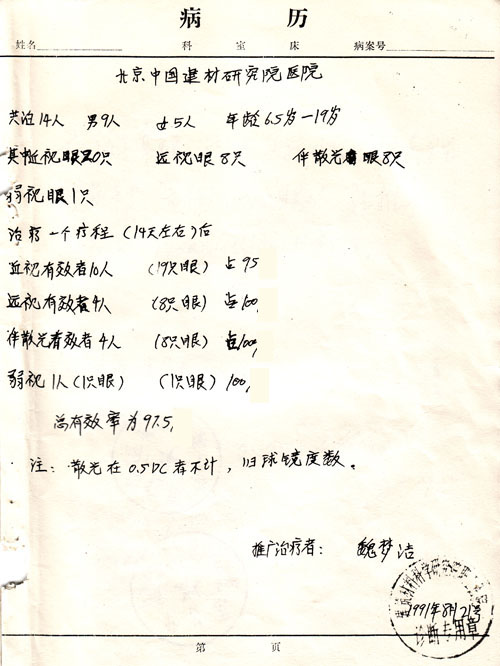 病 历
姓名 科 室 床 病案号
北京中国建材研究院医院
共治14人 男9人 女5人 年龄6.5岁—19岁
其中近视眼20只 远视眼8只 伴散光眼8只
弱视眼1只
治疗一个疗程（14天左右）后
近视有效者10人 （19只眼） 占95
远视有效者4人 （8只眼） 占100,
伴散光有效者4人 （8只眼） 占100,
弱视1人（1只眼） （1只眼）100,
总有效率为97.5,
注：散光在0.5DC者不计，归球镜度数。
推广治疗者：魏梦洁
1991年8月21号
诊断专用章
第 页